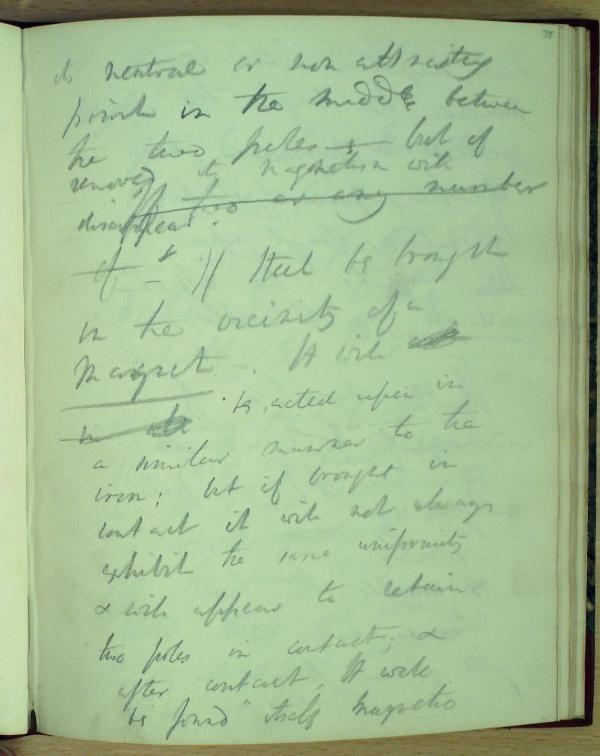 35
its neutral or non attracting
point in the middle between
the two poles - but if
removed its magnetism will
If two or any number
disappear.
If - If steel be brought
in the vicinity of a
Magnet. It will
be acted upon in
in
a similar manner to the
iron; but if brought in
contact it will not always
exhibit the same uniformity
& will appear to retain
two poles in contact; & 
after contact, It will
be found itself magnetic